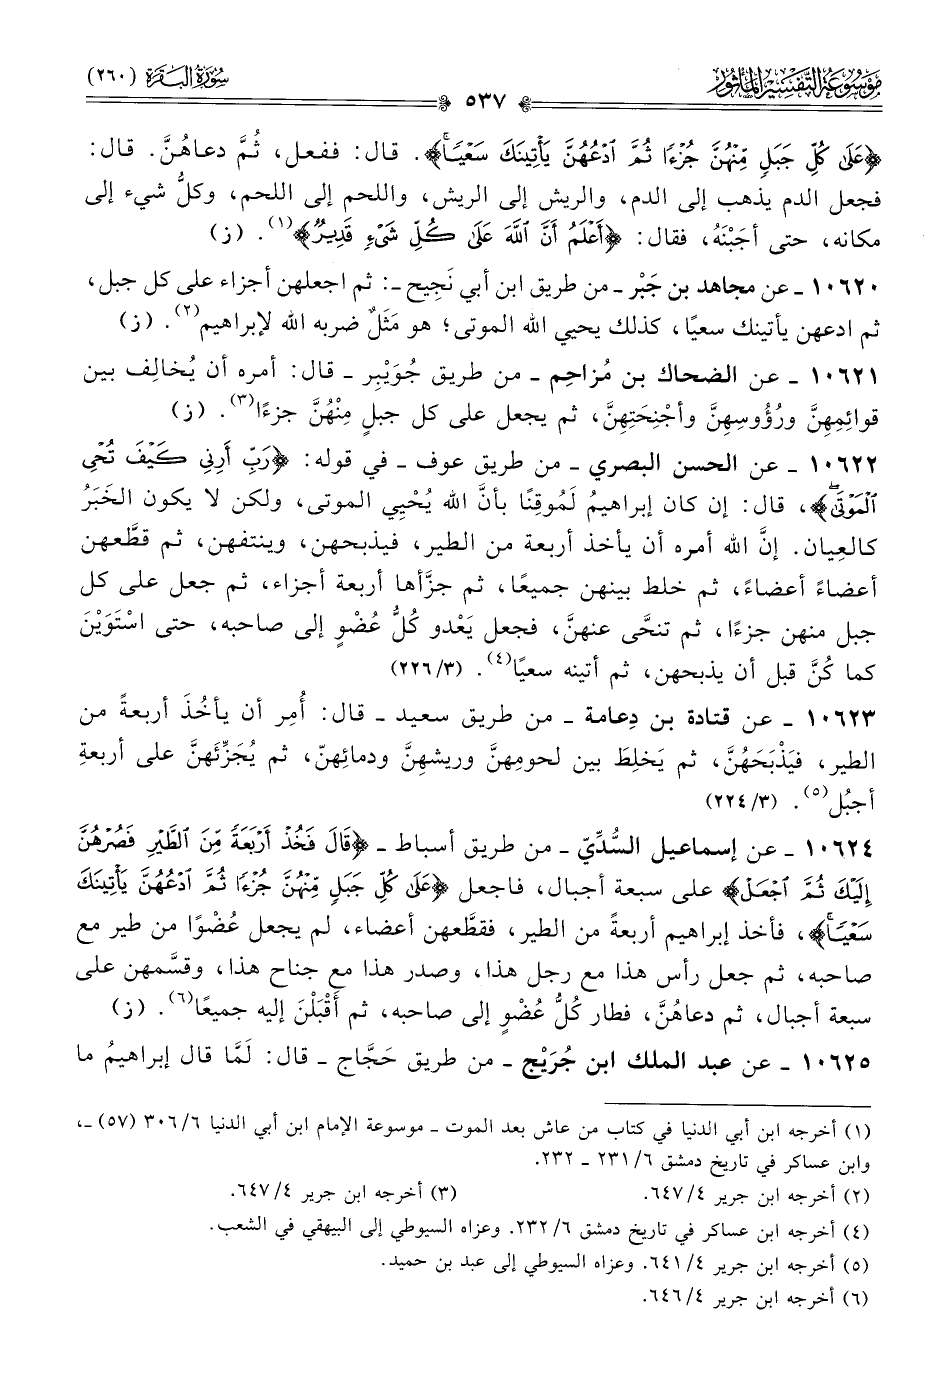 موسوعة التفسير المأثور
سورة البقرة (٢٦٠)
٥٣٧
﴿عَلَىٰ كُلِّ جَبَلٍ مِّنْهُنَّ جُزْءًا ثُمَّ ٱدْعُهُنَّ يَأْتِينَكَ سَعْيًا﴾. قال: ففعل، ثُمَّ دعاهُنَّ. قال:
فجعل الدم يذهب إلى الدم، والريش إلى الريش، واللحم إلى اللحم، وكلُّ شيء إلى
مكانه، حتى أجَبْنَهُ، فقال: ﴿أَعْلَمُ أَنَّ ٱللَّهَ عَلَىٰ كُلِّ شَىْءٍ قَدِيرٌ﴾(١). (ز)
١٠٦٢٠ ـ عن مجاهد بن جَبْر ـ من طريق ابن أبي نَجِيح ـ: ثم اجعلهن أجزاء على كل جبل،
ثم ادعهن يأتينك سعيًا، كذلك يحيي الله الموتى؛ هو مَثَلٌ ضربه الله لإبراهيم(٢). (ز)
١٠٦٢١ ـ عن الضحاك بن مُزاحِم ـ من طريق جُوَيْبِر ـ قال: أمره أن يُخالِف بين
قوائِمِهِنَّ ورُؤُوسِهِنَّ وأجْنِحَتِهِنَّ، ثم يجعل على كل جبلٍ مِنْهُنَّ جزءًا(٣). (ز)
١٠٦٢٢ ـ عن الحسن البصري ـ من طريق عوف ـ في قوله: ﴿رَبِّ أَرِنِى كَيْفَ تُحْىِ
ٱلْمَوْتَىٰ﴾، قال: إن كان إبراهيمُ لَمُوقِنًا بأنَّ الله يُحْيِي الموتى، ولكن لا يكون الخَبَرُ
كالعِيان. إنَّ الله أمره أن يأخذ أربعة من الطير، فيذبحهن، وينتفهن، ثم قطَّعهن
أعضاءً أعضاءً، ثم خلط بينهن جميعًا، ثم جزَّأها أربعة أجزاء، ثم جعل على كل
جبل منهن جزءًا، ثم تنحَّى عنهنَّ، فجعل يَعْدو كُلُّ عُضْوٍ إلى صاحبه، حتى اسْتَوَيْنَ
كما كُنَّ قبل أن يذبحهن، ثم أتينه سعيًا(٤). (٢٢٦/٣)
١٠٦٢٣ ـ عن قتادة بن دِعامة ـ من طريق سعيد ـ قال: أُمِر أن يأخُذَ أربعةً من
الطير، فيَذْبَحَهُنَّ، ثم يَخلِطَ بين لحومِهنَّ وريشهِنَّ ودمائِهنّ، ثم يُجَزِّئَهنَّ على أربعةِ
أجبُل(٥). (٢٢٤/٣)
١٠٦٢٤ ـ عن إسماعيل السُّدِّيِّ ـ من طريق أسباط ـ ﴿قَالَ فَخُذْ أَرْبَعَةً مِّنَ ٱلطَّيْرِ فَصُرْهُنَّ
إِلَيْكَ ثُمَّ ٱجْعَلْ﴾ على سبعة أجبال، فاجعل ﴿عَلَىٰ كُلِّ جَبَلٍ مِّنْهُنَّ جُزْءًا ثُمَّ ٱدْعُهُنَّ يَأْتِينَكَ
سَعْيًا﴾، فأخذ إبراهيم أربعةً من الطير، فقطَّعهن أعضاء، لم يجعل عُضْوًا من طير مع
صاحبه، ثم جعل رأس هذا مع رجل هذا، وصدر هذا مع جناح هذا، وقسَّمهن على
سبعة أجبال، ثم دعاهُنَّ، فطار كُلُّ عُضْوٍ إلى صاحبه، ثم أَقْبَلْنَ إليه جميعًا(٦). (ز)
١٠٦٢٥ ـ عن عبد الملك ابن جُرَيْج ـ من طريق حَجَّاج ـ قال: لَمَّا قال إبراهيمُ ما
(١) أخرجه ابن أبي الدنيا في كتاب من عاش بعد الموت ـ موسوعة الإمام ابن أبي الدنيا ٣٠٦/٦ (٥٧) ـ،
وابن عساكر في تاريخ دمشق ٢٣١/٦ ـ ٢٣٢.
(٢) أخرجه ابن جرير ٦٤٧/٤. (٣) أخرجه ابن جرير ٦٤٧/٤.
(٤) أخرجه ابن عساكر في تاريخ دمشق ٢٣٢/٦. وعزاه السيوطي إلى البيهقي في الشعب.
(٥) أخرجه ابن جرير ٦٤١/٤. وعزاه السيوطي إلى عبد بن حميد.
(٦) أخرجه ابن جرير ٦٤٦/٤.